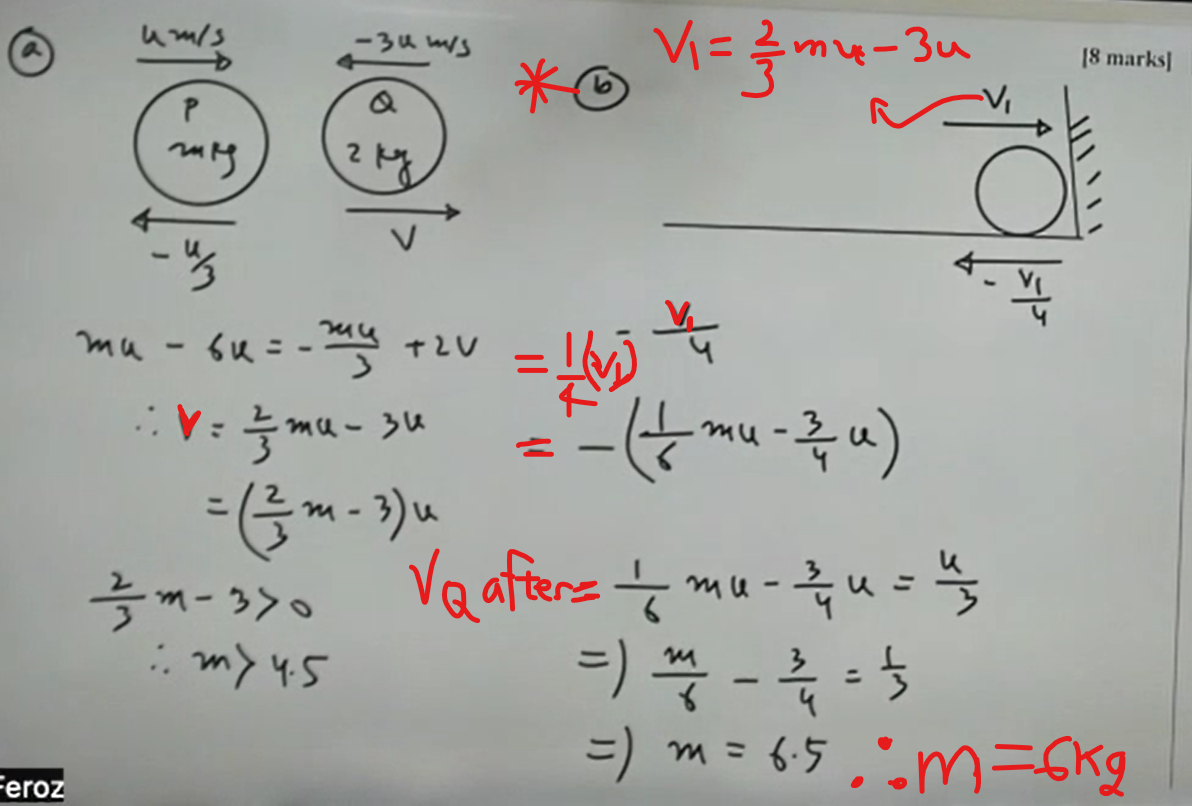 a
u m/s
-3u m/s
P
m kg
Q
2 kg
- u/3
V
mu - 6u = - mu/3 + 2V
∴ V = 2/3 mu - 3u
= (2/3 m - 3)u
2/3 m - 3 > 0
∴ m > 4.5
* b
V₁ = 2/3 mu - 3u
[8 marks]
V₁
- V₁/4
- V₁/4
= 1/4 (V₁)
= - (1/6 mu - 3/4 u)
VQ after = 1/6 mu - 3/4 u = u/3
=) m/6 - 3/4 = 1/3
=) m = 6.5 ∴ m = 6kg
Feroz